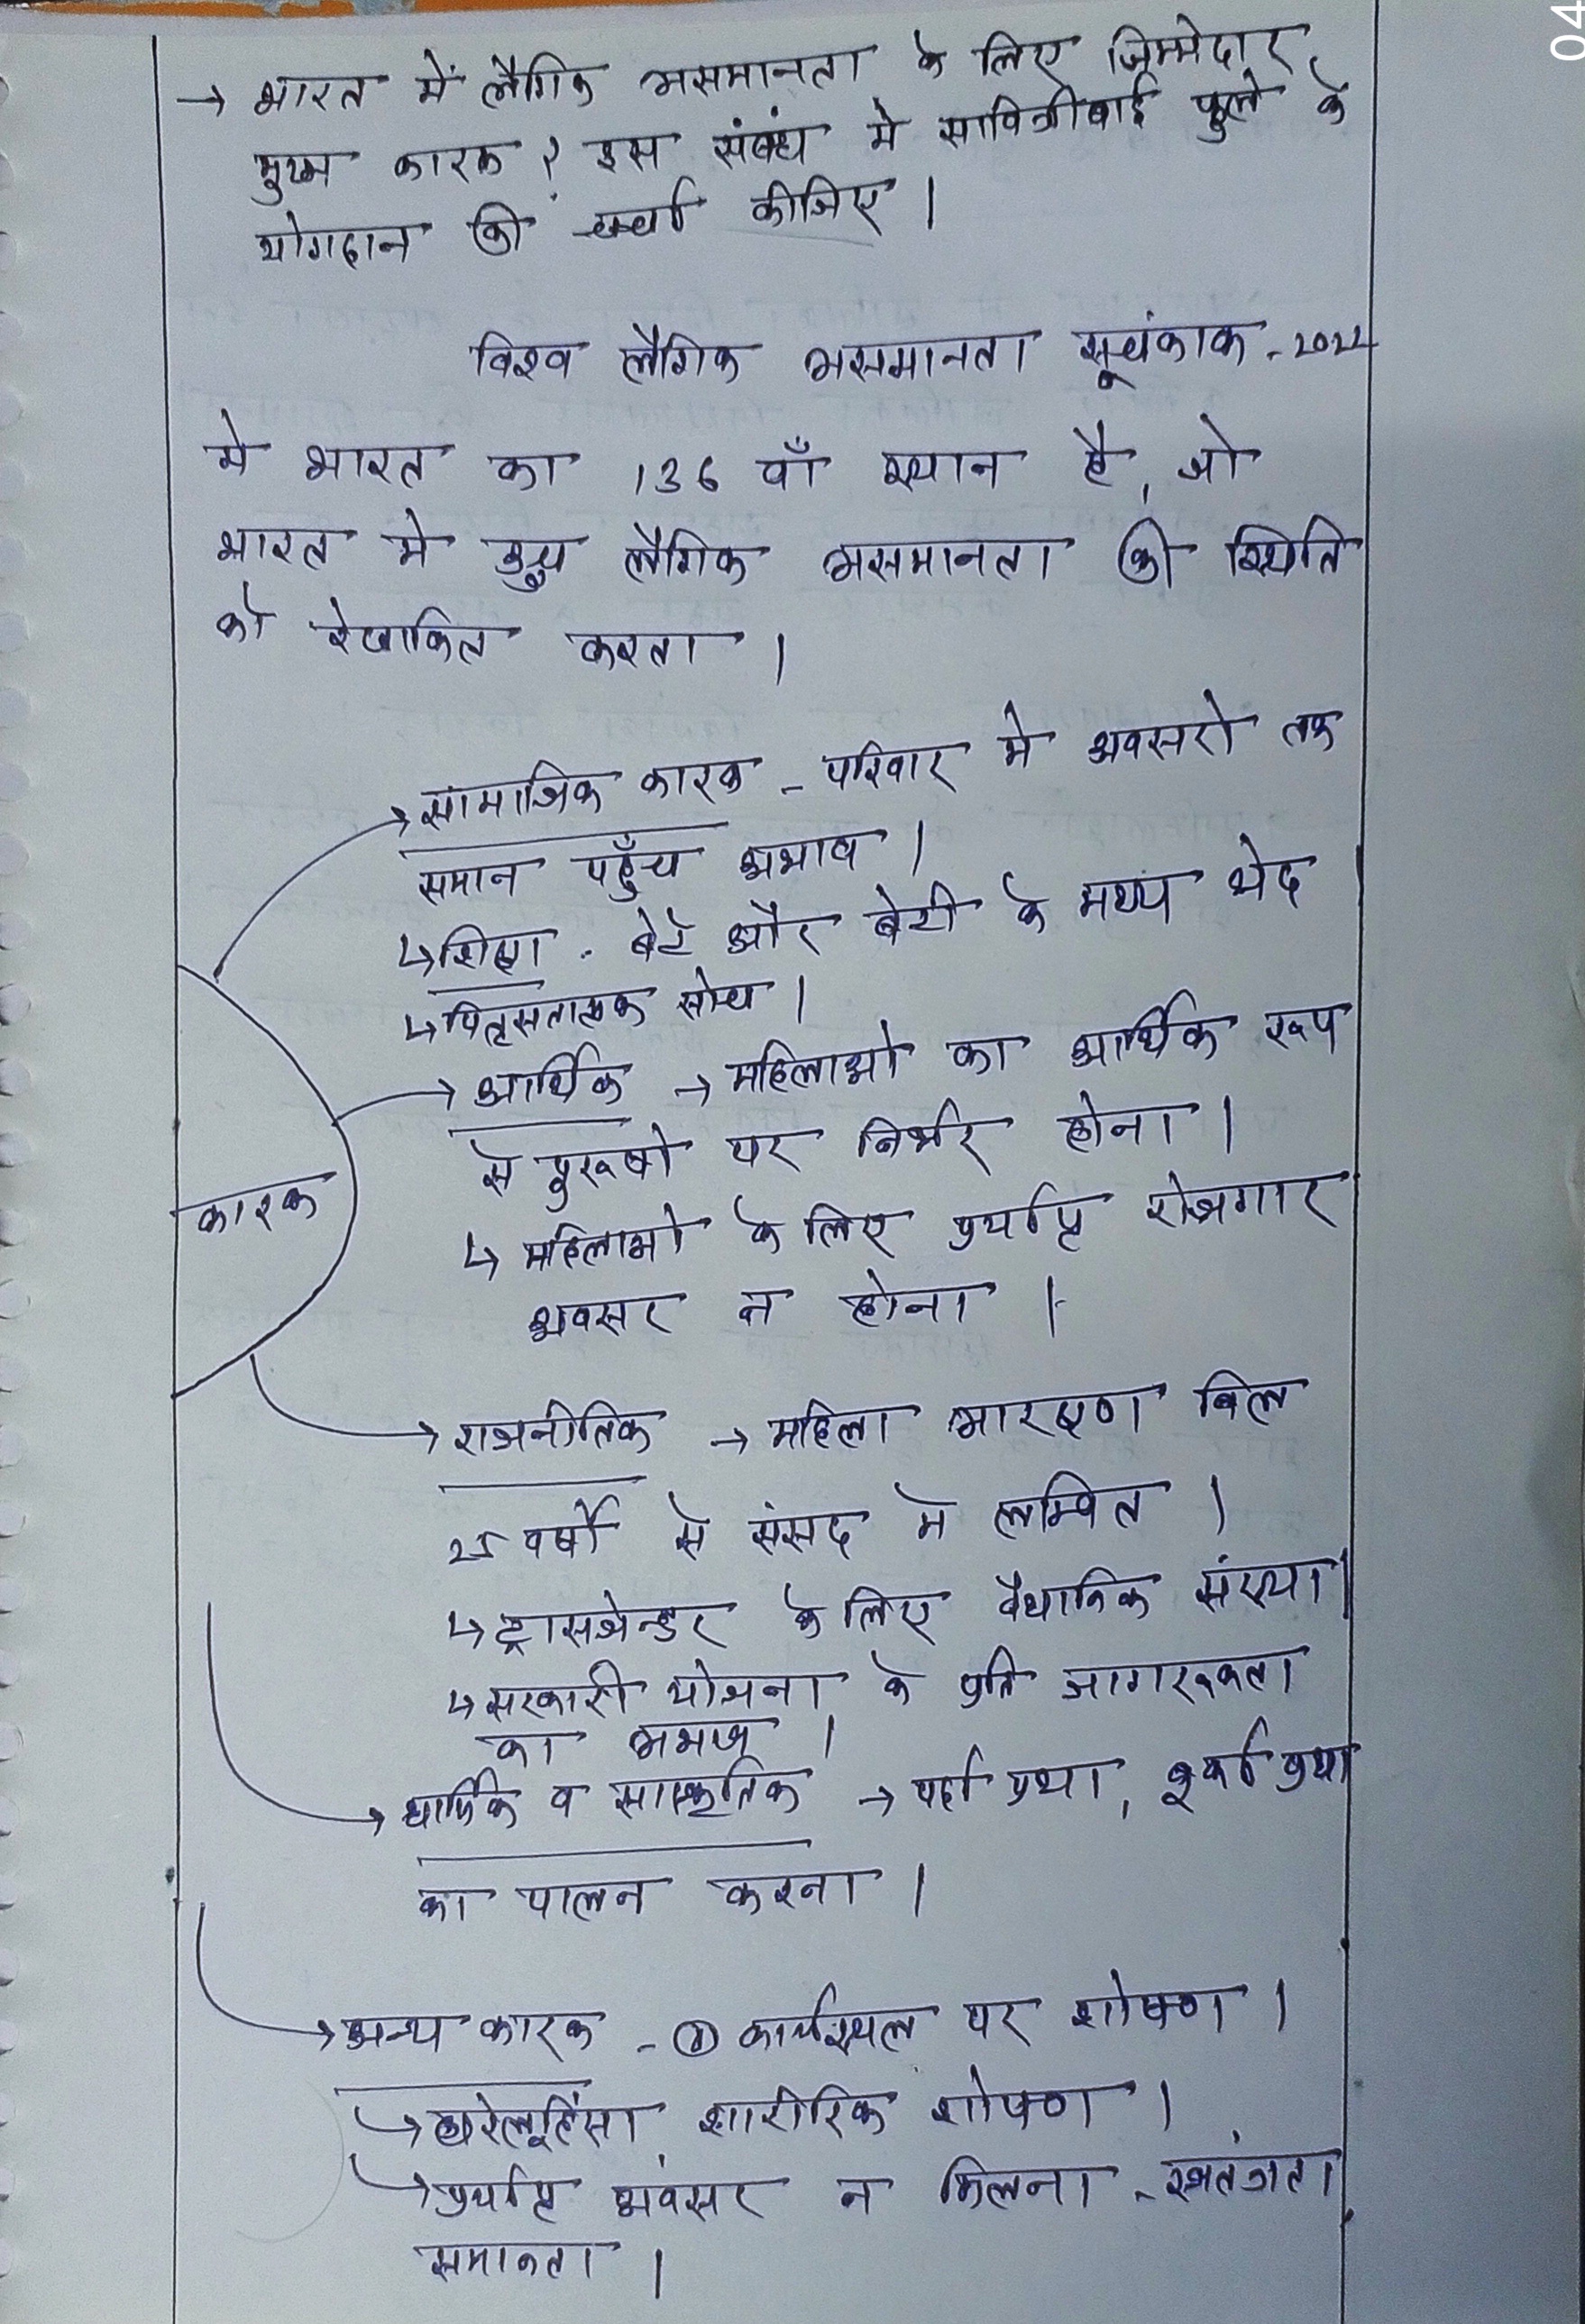 04
→ भारत में लैंगिक असमानता के लिए जिम्मेदार
मुख्य कारक? इस संबंध मे सावित्रीबाई फुले के
योगदान की चर्चा कीजिए।
विश्व लैंगिक असमानता सूचंकाक - 2022
मे भारत का 136 वाँ स्थान है, जो
भारत मे उच्च लैंगिक असमानता की स्थिति
को रेखाकित करता।
→ सामाजिक कारक - परिवार मे अवसरो तक
समान पहुँच अभाव।
↳ शिक्षा - बेटे और बेटी के मध्य भेद।
↳ पितृसतात्मक सोच।
→ आर्थिक → महिलाओ का आर्थिक रूप
से पुरूषो पर निर्भर होना।
कारक
↳ महिलाओ के लिए पर्याप्त रोजगार
अवसर न होना।
→ राजनीतिक → महिला आरक्षण बिल
25 वर्षो से संसद मे लम्बित।
↳ ट्रासजेन्डर के लिए वैधानिक संख्या।
↳ सरकारी योजना के प्रति जागरूकता
का अभाव।
→ धार्मिक व सास्कृतिक → पर्दा प्रथा, बुर्का प्रथा
का पालन करना।
→ अन्य कारक - कार्यस्थल पर शोषण।
↳ घरेलू हिंसा, शारीरिक शोषण।
↳ पर्याप्त अवसर न मिलना - स्वतंत्रता।
समानता।